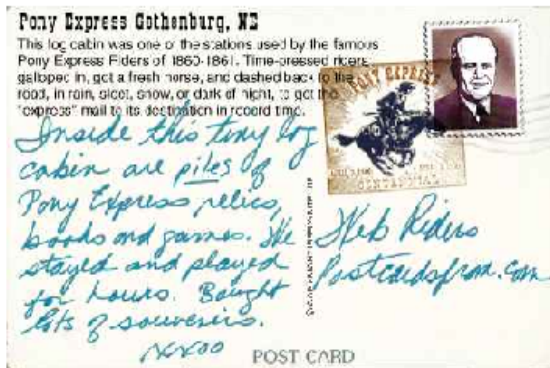 Pony Express Gothenburg, NE
This log cabin was one of the stations used by the famous
Pony Express Riders of 1860-1861. Time-pressed riders
galloped in, got a fresh horse, and dashed back to the
road, in rain, sleet, snow, or dark of night, to get the
"express" mail to its destination in record time.
Inside this tiny log
cabin are piles of
Pony Express relics,
books and games. We
stayed and played
for hours. Bought
lots of souvenirs.
XXOO
PONY EXPRESS
CENTENNIAL
Web Riders
Postcardsfrom.com
POST CARD